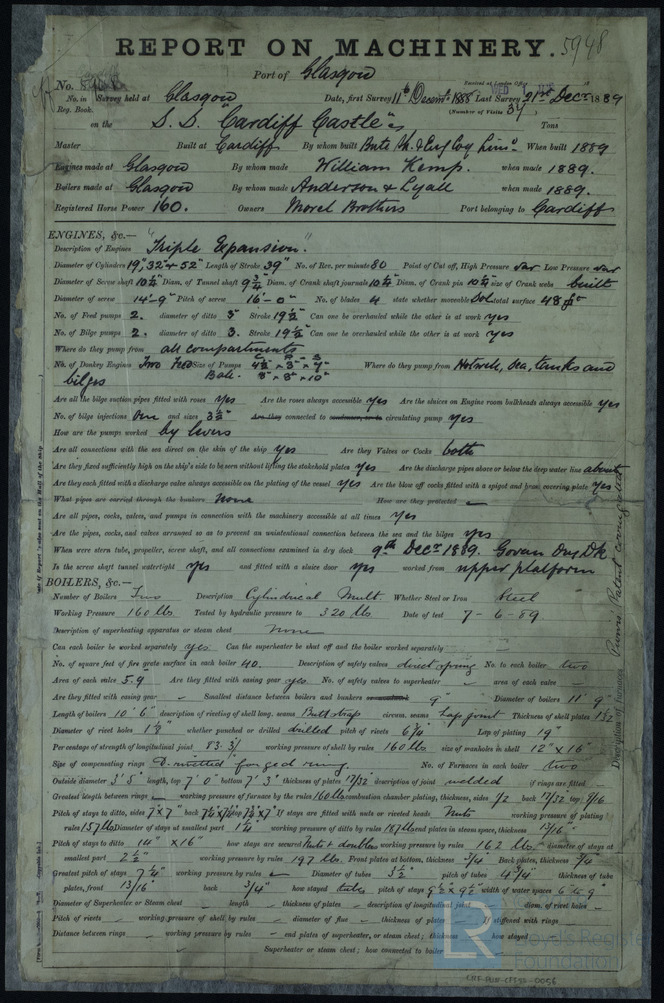 REPORT ON MACHINERY. 5948
Port of Glasgow
No. Received at London Office WED 1
No. in Survey held at Glasgow Date, first Survey 11th Decemr 1888 Last Survey 21st Decr 1889
Reg. Book. (Number of Visits 34)
on the S.S. "Cardiff Castle" Tons
Master Built at Cardiff By whom built Bute When built 1889
Engines made at Glasgow By whom made William Kemp. when made 1889.
Boilers made at Glasgow By whom made Anderson & Lyall when made 1889.
Registered Horse Power 160. Owners Morel Brothers Port belonging to Cardiff
ENGINES, &c.—
Description of Engines "Triple Expansion."
Diameter of Cylinders 19", 32" & 52" Length of Stroke 39" No. of Rev. per minute 80 Point of Cut off, High Pressure var Low Pressure var
Diameter of Screw shaft 10¼ Diam. of Tunnel shaft 9¾ Diam. of Crank shaft journals 10¼ Diam. of Crank pin 10¼ size of Crank webs built
Diameter of screw 14'-9" Pitch of screw 16'-0" No. of blades 4 state whether moveable Sol total surface 48
No. of Feed pumps 2. diameter of ditto 3" Stroke 19½" Can one be overhauled while the other is at work yes
No. of Bilge pumps 2. diameter of ditto 3. Stroke 19½" Can one be overhauled while the other is at work yes
Where do they pump from all compartments
No. of Donkey Engines Two Feed Size of Pumps 4½" × 3" × 7" Where do they pump from Hotwell, sea, tanks and
bilges Ball. 8" × 8" × 10"
Are all the bilge suction pipes fitted with roses yes Are the roses always accessible yes Are the sluices on Engine room bulkheads always accessible yes
No. of bilge injections One and sizes 3½" Are they connected to condenser, or to circulating pump yes
How are the pumps worked by levers
Are all connections with the sea direct on the skin of the ship yes Are they Valves or Cocks both
Are they fixed sufficiently high on the ship's side to be seen without lifting the stokehold plates yes Are the discharge pipes above or below the deep water line above
Are they each fitted with a discharge valve always accessible on the plating of the vessel yes Are the blow off cocks fitted with a spigot and brass covering plate yes
What pipes are carried through the bunkers None How are they protected —
Are all pipes, cocks, valves, and pumps in connection with the machinery accessible at all times yes
Are the pipes, cocks, and valves arranged so as to prevent an unintentional connection between the sea and the bilges yes
When were stern tube, propeller, screw shaft, and all connections examined in dry dock 9th Decr 1889. Govan Dry Dk
Is the screw shaft tunnel watertight yes and fitted with a sluice door yes worked from upper platform
BOILERS, &c.—
Number of Boilers Two Description Cylindrical Mult. Whether Steel or Iron Steel
Working Pressure 160 lbs Tested by hydraulic pressure to 320 lbs Date of test 7-6-89
Description of superheating apparatus or steam chest none
Can each boiler be worked separately yes Can the superheater be shut off and the boiler worked separately —
No. of square feet of fire grate surface in each boiler 40. Description of safety valves direct spring No. to each boiler two
Area of each valve 5.9 Are they fitted with easing gear yes No. of safety valves to superheater — area of each valve —
Are they fitted with easing gear — Smallest distance between boilers and bunkers 9" Diameter of boilers 11' 9"
Length of boilers 10' 6" description of riveting of shell long. seams Butt straps circum. seams Lap joint Thickness of shell plates 1 1/32
Diameter of rivet holes 1⅛" whether punched or drilled drilled pitch of rivets 6¾ Lap of plating 19"
Per centage of strength of longitudinal joint 83.3/. working pressure of shell by rules 160 lbs size of manholes in shell 12" × 16"
Size of compensating rings D. rivetted forged ring. No. of Furnaces in each boiler two
Outside diameter 3' 5" length, top 7' 0" bottom 7' 3" thickness of plates 17/32" description of joint welded if rings are fitted —
Greatest length between rings — working pressure of furnace by the rules 160 lbs combustion chamber plating, thickness, sides ½ back 17/32 top 9/16
Pitch of stays to ditto, sides 7" × 7" back If stays are fitted with nuts or riveted heads Nuts working pressure of plating by
rules 157 lbs Diameter of stays at smallest part 1¼" working pressure of ditto by rules 187 lbs end plates in steam space, thickness 13/16"
Pitch of stays to ditto 14" × 16" how stays are secured Nuts & doublers working pressure by rules 162 lbs diameter of stays at
smallest part 2½" working pressure by rules 197 lbs. Front plates at bottom, thickness ¾ Back plates, thickness ¾
Greatest pitch of stays 7¼" working pressure by rules — Diameter of tubes 3½" pitch of tubes 4¾" thickness of tube
plates, front 13/16" back ¾" how stayed tubes pitch of stays 9½" × 9½" width of water spaces 6 to 9"
Diameter of Superheater or Steam chest — length — thickness of plates — description of longitudinal joint — diam. of rivet holes —
Pitch of rivets — working pressure of shell by rules — diameter of flue — thickness of plates — If stiffened with rings —
Distance between rings — working pressure by rules — end plates of superheater, or steam chest; thickness how stayed
Superheater or steam chest; how connected to boiler
Description of Furnaces Purves Patent corrugated
LR
Lloyd's Register
Foundation